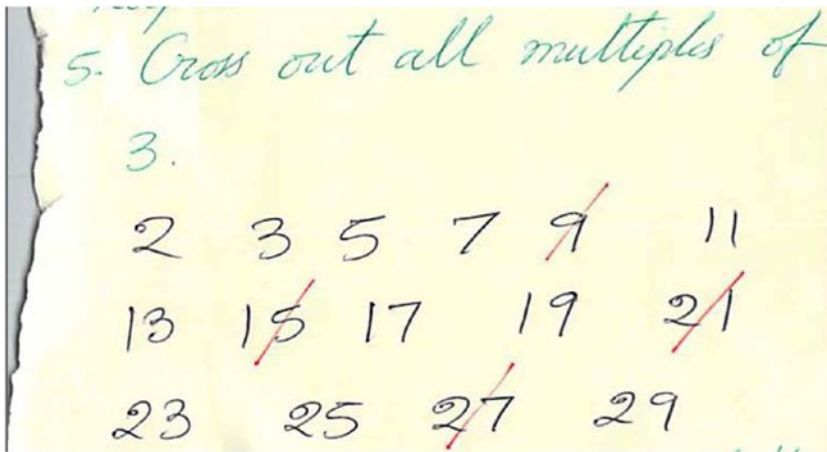 5. Cross out all multiples of
3.
2 3 5 7 9 11
13 15 17 19 21
23 25 27 29